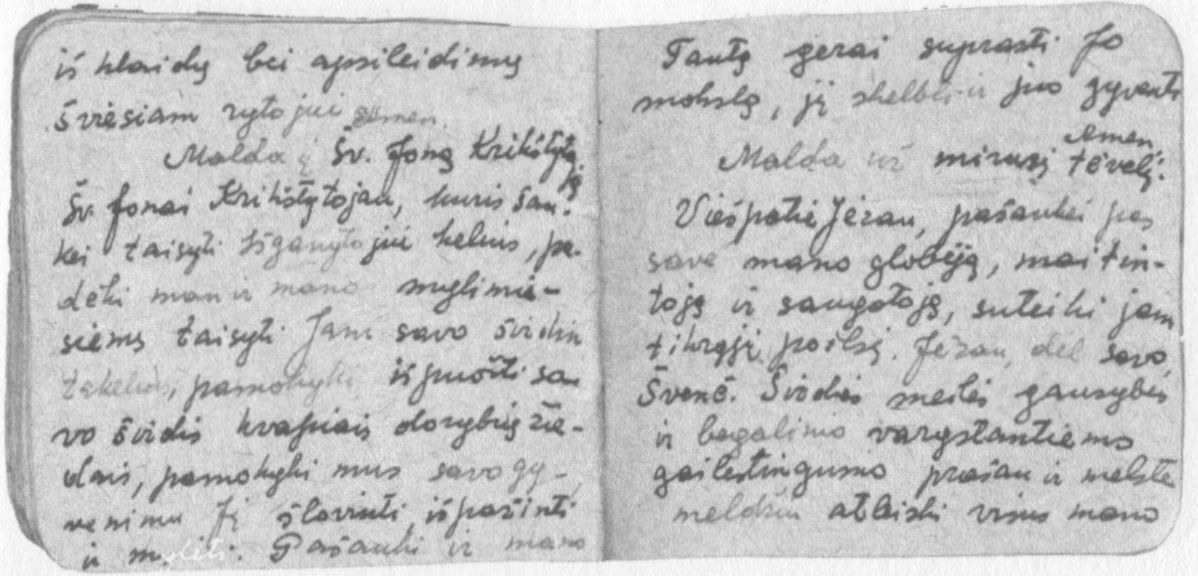 iš klaidų bei apsileidimų
šviesiam rytojui amen.
Malda į Šv. Joną Krikštytoją
Šv. Jonai Krikštytojau, kuris šau-
kei taisyti Išganytojui kelius, pa-
dėki man ir mano mylimie-
siems taisyti Jam savo širdin
takelius, pamokyki išpuošti sa-
vo širdis kvapiais dorybių žie-
dais, pamokyki mus savo gy-
venimu Jį šlovinti, išpažinti
ir mylėti. Pašauki ir mano
Tautą gerai suprasti Jo
mokslą, jį skelbti ir juo gyventi
Amen.
Malda už mirusį tėvelį.
Viešpatie Jėzau, pašaukei pas
save mano globėją, maitin-
toją ir saugotoją, suteiki jam
tikrąjį poilsį. Jėzau, dėl savo
Švenč. Širdies meilės gausybės
ir begalinio vargstantiems
gailestingumo prašau ir melste
meldžiu atleisti visus mano